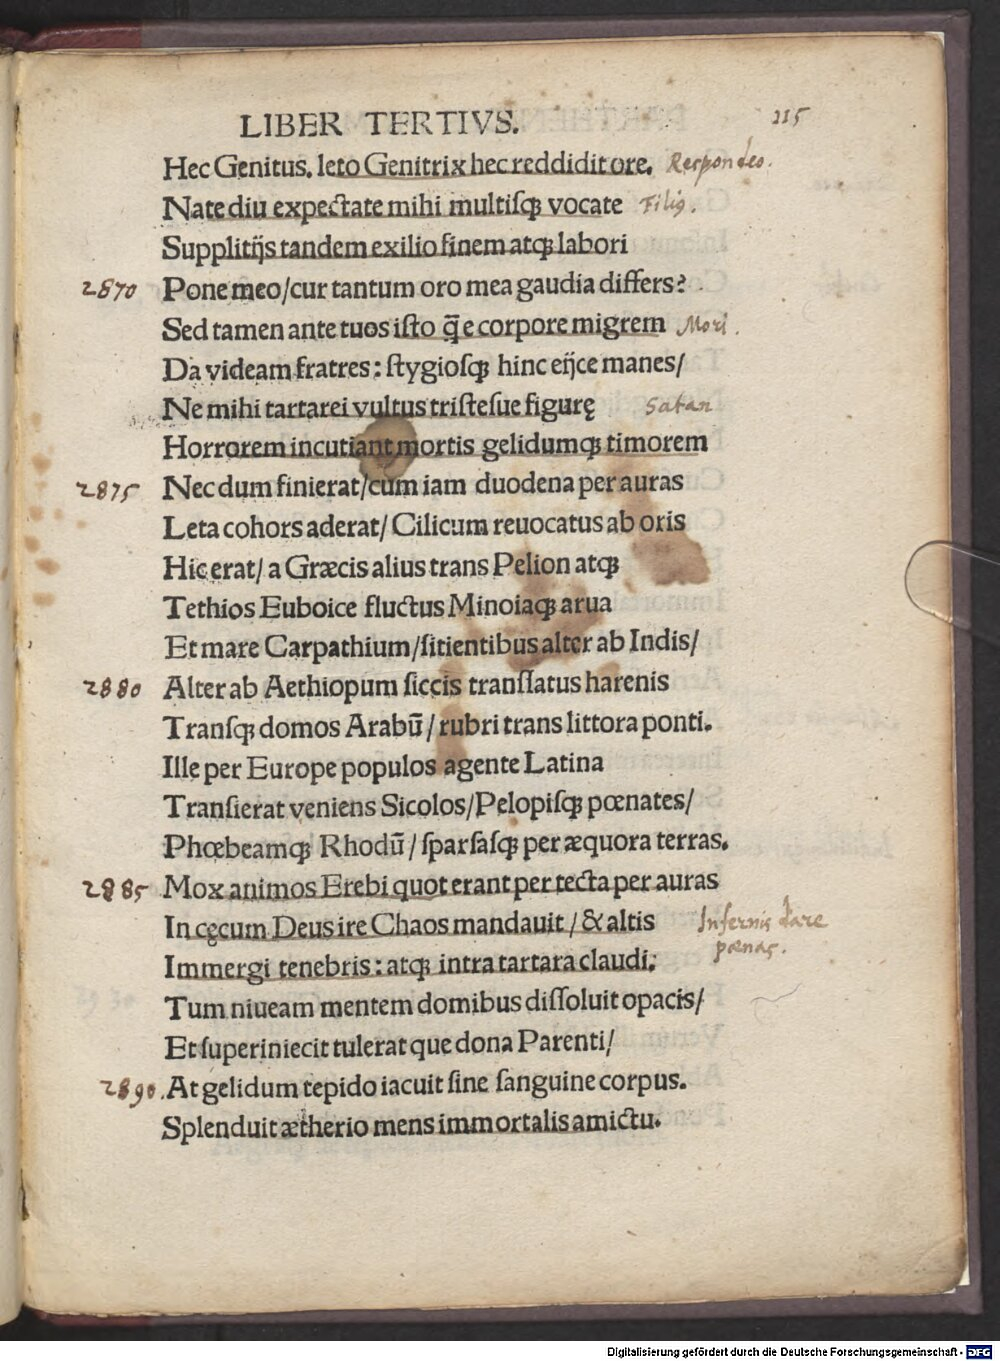 LIBER TERTIVS. 115
Hec Genitus. leto Genitrix hec reddidit ore. Respondeo.
Nate diu expectate mihi multisqꝫ vocate Filiꝰ.
Supplitijs tandem exilio finem atqꝫ labori
2870 Pone meo/cur tantum oro mea gaudia differs?
Sed tamen ante tuos isto q̃ e corpore migrem Mori.
Da videam fratres: stygiosqꝫ hinc eijce manes/
Ne mihi tartarei vultus tristesue figurę Satan
Horrorem incutiant mortis gelidumqꝫ timorem
2875 Nec dum finierat/cum iam duodena per auras
Leta cohors aderat/ Cilicum reuocatus ab oris
Hic erat/ a Græcis alius trans Pelion atqꝫ
Tethios Euboice fluctus Minoiaqꝫ arua
Et mare Carpathium/sitientibus alter ab Indis/
2880 Alter ab Aethiopum siccis translatus harenis
Transqꝫ domos Arabū/ rubri trans littora ponti.
Ille per Europe populos agente Latina
Transierat veniens Sicolos/Pelopisqꝫ pœnates/
Phœbeamqꝫ Rhodū/ sparsasqꝫ per æquora terras.
2885 Mox animos Erebi quot erant per tecta per auras
In cęcum Deus ire Chaos mandauit/ & altis Infernis dare
Immergi tenebris: atqꝫ intra tartara claudi. pœnas.
Tum niueam mentem domibus dissoluit opacis/
Et superiniecit tulerat que dona Parenti/
2890. At gelidum tepido iacuit sine sanguine corpus.
Splenduit ætherio mens immortalis amictu.
Digitalisierung gefördert durch die Deutsche Forschungsgemeinschaft - DFG